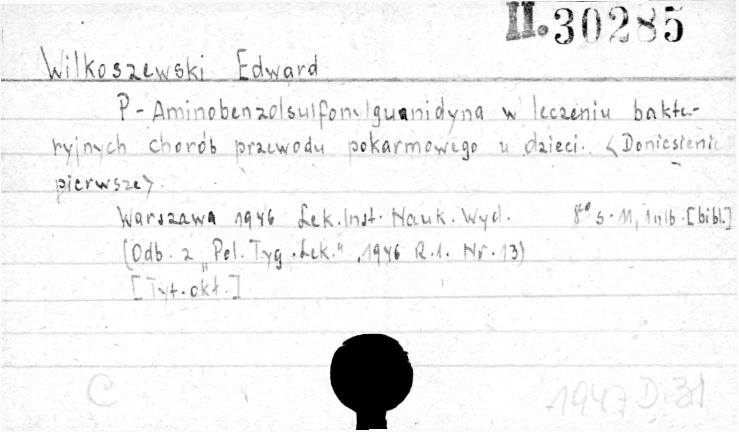 II.30285
Wilkoszewski Edward
P-Aminobenzolsulfonylguanidyna w leczeniu bakte-
ryjnych chorób przewodu pokarmowego u dzieci. <Doniesienie
pierwsze>
Warszawa 1946 Lek. Inst. Nauk. Wyd. 8° s. 11, 1 nlb. [bibl.]
(Odb. z „Pol. Tyg. Lek.", 1946 R.1. Nr. 13)
[Tyt. okł.]
C 1947 D. 31